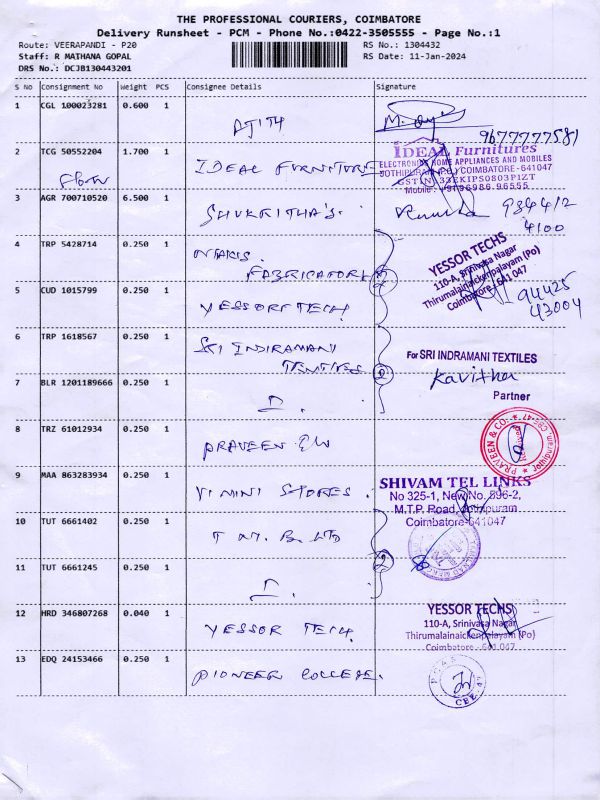 THE PROFESSIONAL COURIERS, COIMBATORE
Delivery Runsheet - PCM - Phone No.:0422-3505555 - Page No.:1
Route: VEERAPANDI - P20
RS No.: 1304432
Staff: R MATHANA GOPAL
RS Date: 11-Jan-2024
DRS No.: DCJB130443201
S No Consignment No Weight PCS Consignee Details Signature
1 CGL 100023281 0.600 1 AJITH
9677777581
2 TCG 50552204 1.700 1 IDEAL FURNITURE
IDEAL Furnitures
ELECTRONIC HOME APPLIANCES AND MOBILES
JOTHIPURAM (PO) COIMBATORE-641047
GSTIN: 33EKIPS0803P1ZT
Mobile: +91 96986 96555
3 AGR 700710520 6.500 1 SHUKRITHA'S.
934412
4100
4 TRP 5428714 0.250 1
FABRICATORS
YESSOR TECHS
110-A, Srinivasa Nagar
Thirumalainaickenpalayam (Po)
Coimbatore - 641 047
94425
43004
5 CUD 1015799 0.250 1 YESSOR TECH
6 TRP 1618567 0.250 1 SRI INDIRAMANI
TEXTILES 2
For SRI INDRAMANI TEXTILES
Kavitha
Partner
7 BLR 1201189666 0.250 1
8 TRZ 61012934 0.250 1 PRAVEEN & CO
PRAVEEN & CO.
9 MAA 863283934 0.250 1 VI MINI STORES.
SHIVAM TEL LINKS
No 325-1, New No. 896-2,
M.T.P. Road, Jothipuram
Coimbatore-641047
10 TUT 6661402 0.250 1 T M. B. LTD
2
11 TUT 6661245 0.250 1
12 HRD 346807268 0.040 1 YESSOR TECH.
YESSOR TECHS
110-A, Srinivasa Nagar
Thirumalainaickenpalayam (Po)
Coimbatore - 641 047
13 EDQ 24153466 0.250 1 PIONEER COLLEGE.